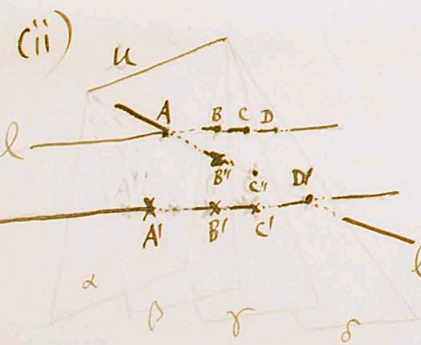 (ii)
u
A B C D
l
B'' C'' D'
A' B' C'
l
α β γ δ